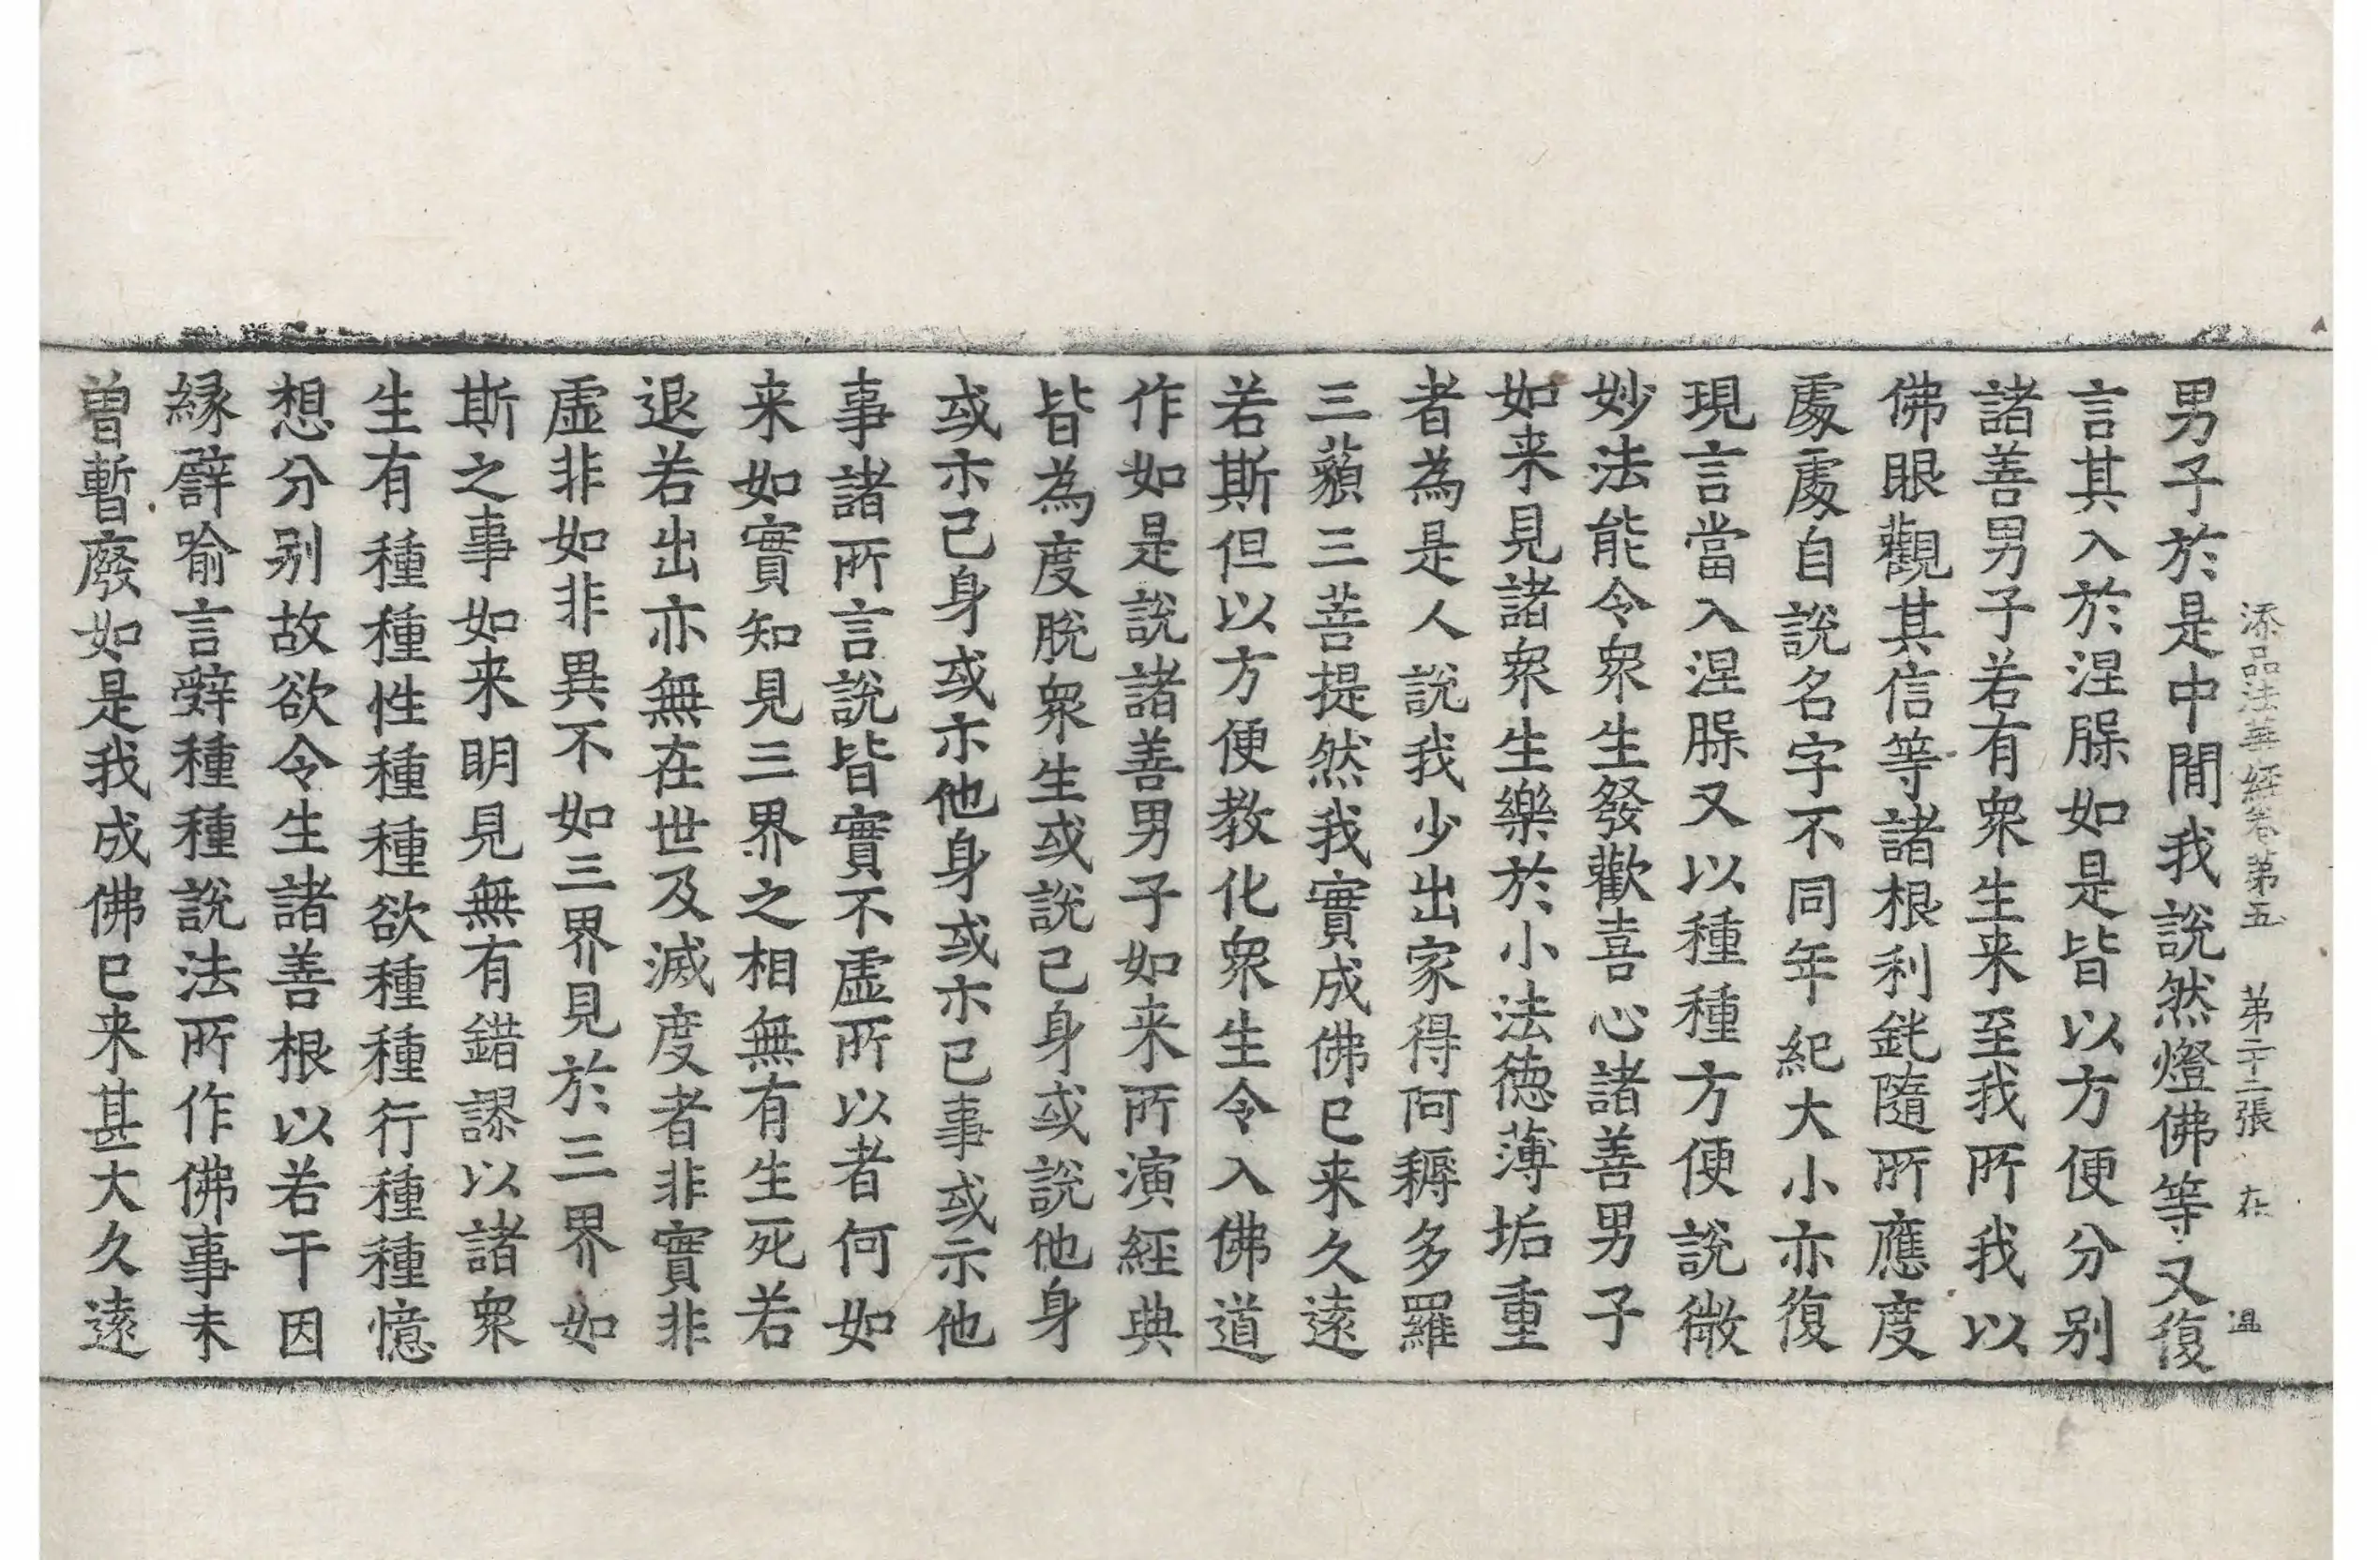 添品法華經卷第五 第二十二張 在 温
男子於是中間我說然燈佛等又復
言其入於涅脲如是皆以方便分别
諸善男子若有衆生来至我所我以
佛眼觀其信等諸根利鈍隨所應度
處處自說名字不同年紀大小亦復
現言當入涅脲又以種種方便說微
妙法能令衆生發歡喜心諸善男子
如来見諸衆生樂於小法德薄垢重
者為是人說我少出家得阿耨多羅
三藐三菩提然我實成佛已来久遠
若斯但以方便教化衆生令入佛道
作如是說諸善男子如来所演經典
皆為度脫衆生或說己身或說他身
或示己身或示他身或示己事或示他
事諸所言說皆實不虛所以者何如
来如實知見三界之相無有生死若
退若出亦無在世及滅度者非實非
虛非如非異不如三界見於三界如
斯之事如来明見無有錯謬以諸衆
生有種種性種種欲種種行種種憶
想分别故欲令生諸善根以若干因
緣譬喻言辭種種說法所作佛事未
曾暫廢如是我成佛已来甚大久遠